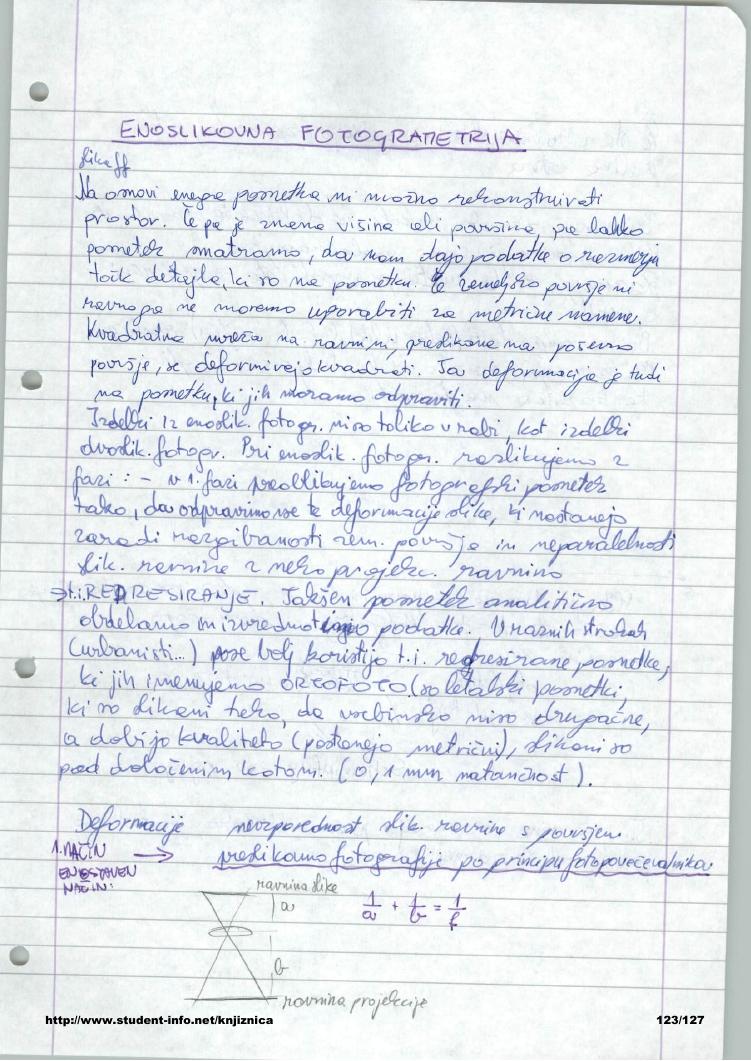 ENOSLIKOVNA FOTOGRAMETRIJA
Na osnovi enega posnetka ni možno rekonstruirati
prostor. Če pa je znana višina ali površina, pa lahko
posnetek smatramo, da nam dajo podatke o razmerju
točk detajla, ki so na posnetku. Če zemeljsko površje ni
ravno ga ne moremo uporabiti za metrične namene.
Kvadratna mreža na ravnini, preslikana na poševno
površje, se deformirajo kvadrati. Ta deformacija je tudi
na posnetku, ki jih moramo odpraviti.
Izdelki iz enoslik. fotogr. niso toliko v rabi, kot izdelki
dvoslik. fotogr. Pri enoslik. fotogr. razlikujemo 2
fazi: - v 1. fazi preoblikujemo fotografski posnetek
tako, da odpravimo vse te deformacije slike, ki nastanejo
zaradi razgibanosti zem. površja in neparalelnosti
slik. ravnine z neko projekc. ravnino
⇒ t.i. REDRESIRANJE. Takšen posnetek analitično
obdelamo in izvrednotimo podatke. V raznih strokah
(urbanisti...) pa se bolj koristijo t.i. redresirane posnetke,
ki jih imenujemo ORTOFOTO (so letalski posnetki,
ki so slikani tako, da vsebinsko niso drugačne,
a dobijo kvaliteto (postanejo metrični), slikani so
pod določenim kotom. (0,1 mm natančnost).
Deformacije nevzporednost slik. ravnine s površjem.
1. NAČIN → preslikamo fotografije po principu fotopovečevalnika
ENOSTAVEN
NAČIN:
ravnina slike
a
1/a + 1/b = 1/f
b
ravnina projekcije
http://www.student-info.net/knjiznica 123/127